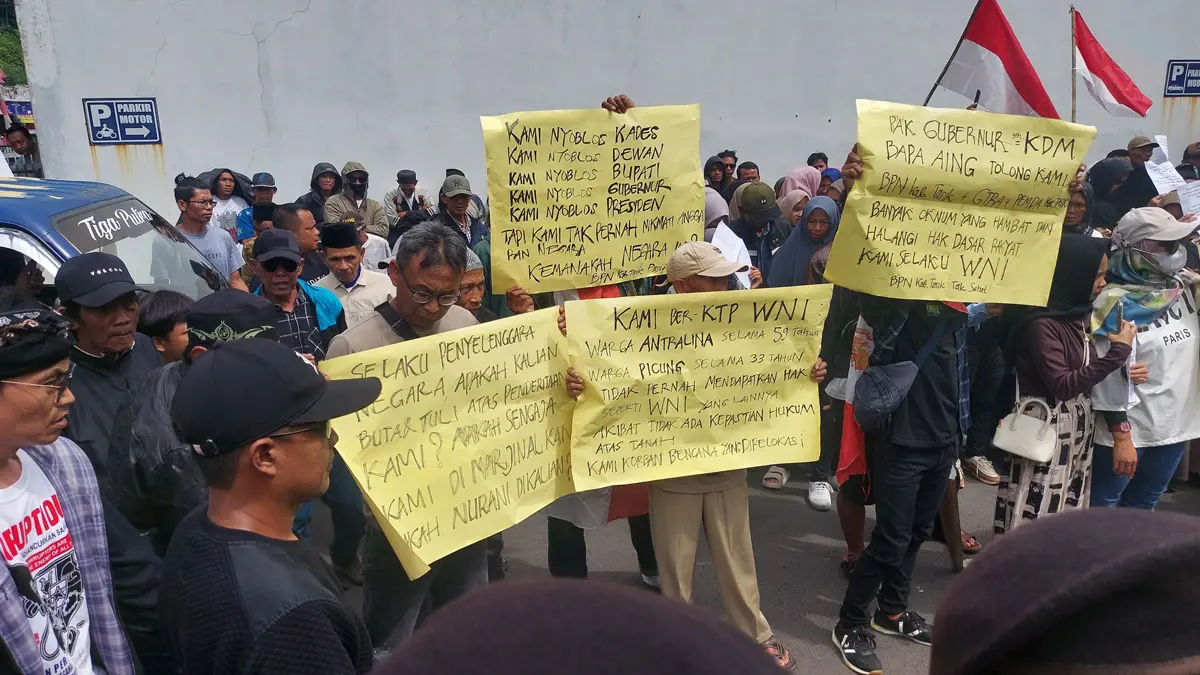 P
PARKIR
MOTOR
P
PARK
MO
Tiga Putra
KAMI NYOBLOS KADES
KAMI NYOBLOS DEWAN
KAMI NYOBLOS BUPATI
KAMI NYOBLOS GUBERNUR
KAMI NYOBLOS PRESIDEN
TAPI KAMI TAK PERNAH NIKMATI ANGGA
DAN NEGARA
KEMANAKAH NEGARA
BPN
PAK GUBERNUR = KDM
BAPA AING TOLONG KAMI
BPN Kab. Tasik + GTRA + PEMDA
BANYAK OKNUM YANG HAMBAT DAN
HALANGI HAK DASAR RAKYAT
KAMI SELAKU WNI
BPN KAB. TASIK
SELAKU PENYELENGGARA
NEGARA APAKAH KALIAN
BUTA & TULI ATAS PENDERITAAN
KAMI? APAKAH SENGAJA
KAMI DI MARJINALKAN
NURANI DIKALIAN?
KAMI BER-KTP WNI
WARGA ANTRALINA SELAMA 59 TAHUN
WARGA PICUNG SELAMA 33 TAHUN
TIDAK PERNAH MENDAPATKAN HAK
SEPERTI WNI YANG LAINNYA
AKIBAT TIDAK ADA KEPASTIAN HUKUM
ATAS TANAH
KAMI KORBAN BENCANA YANG DIRELOKASI
PARIS